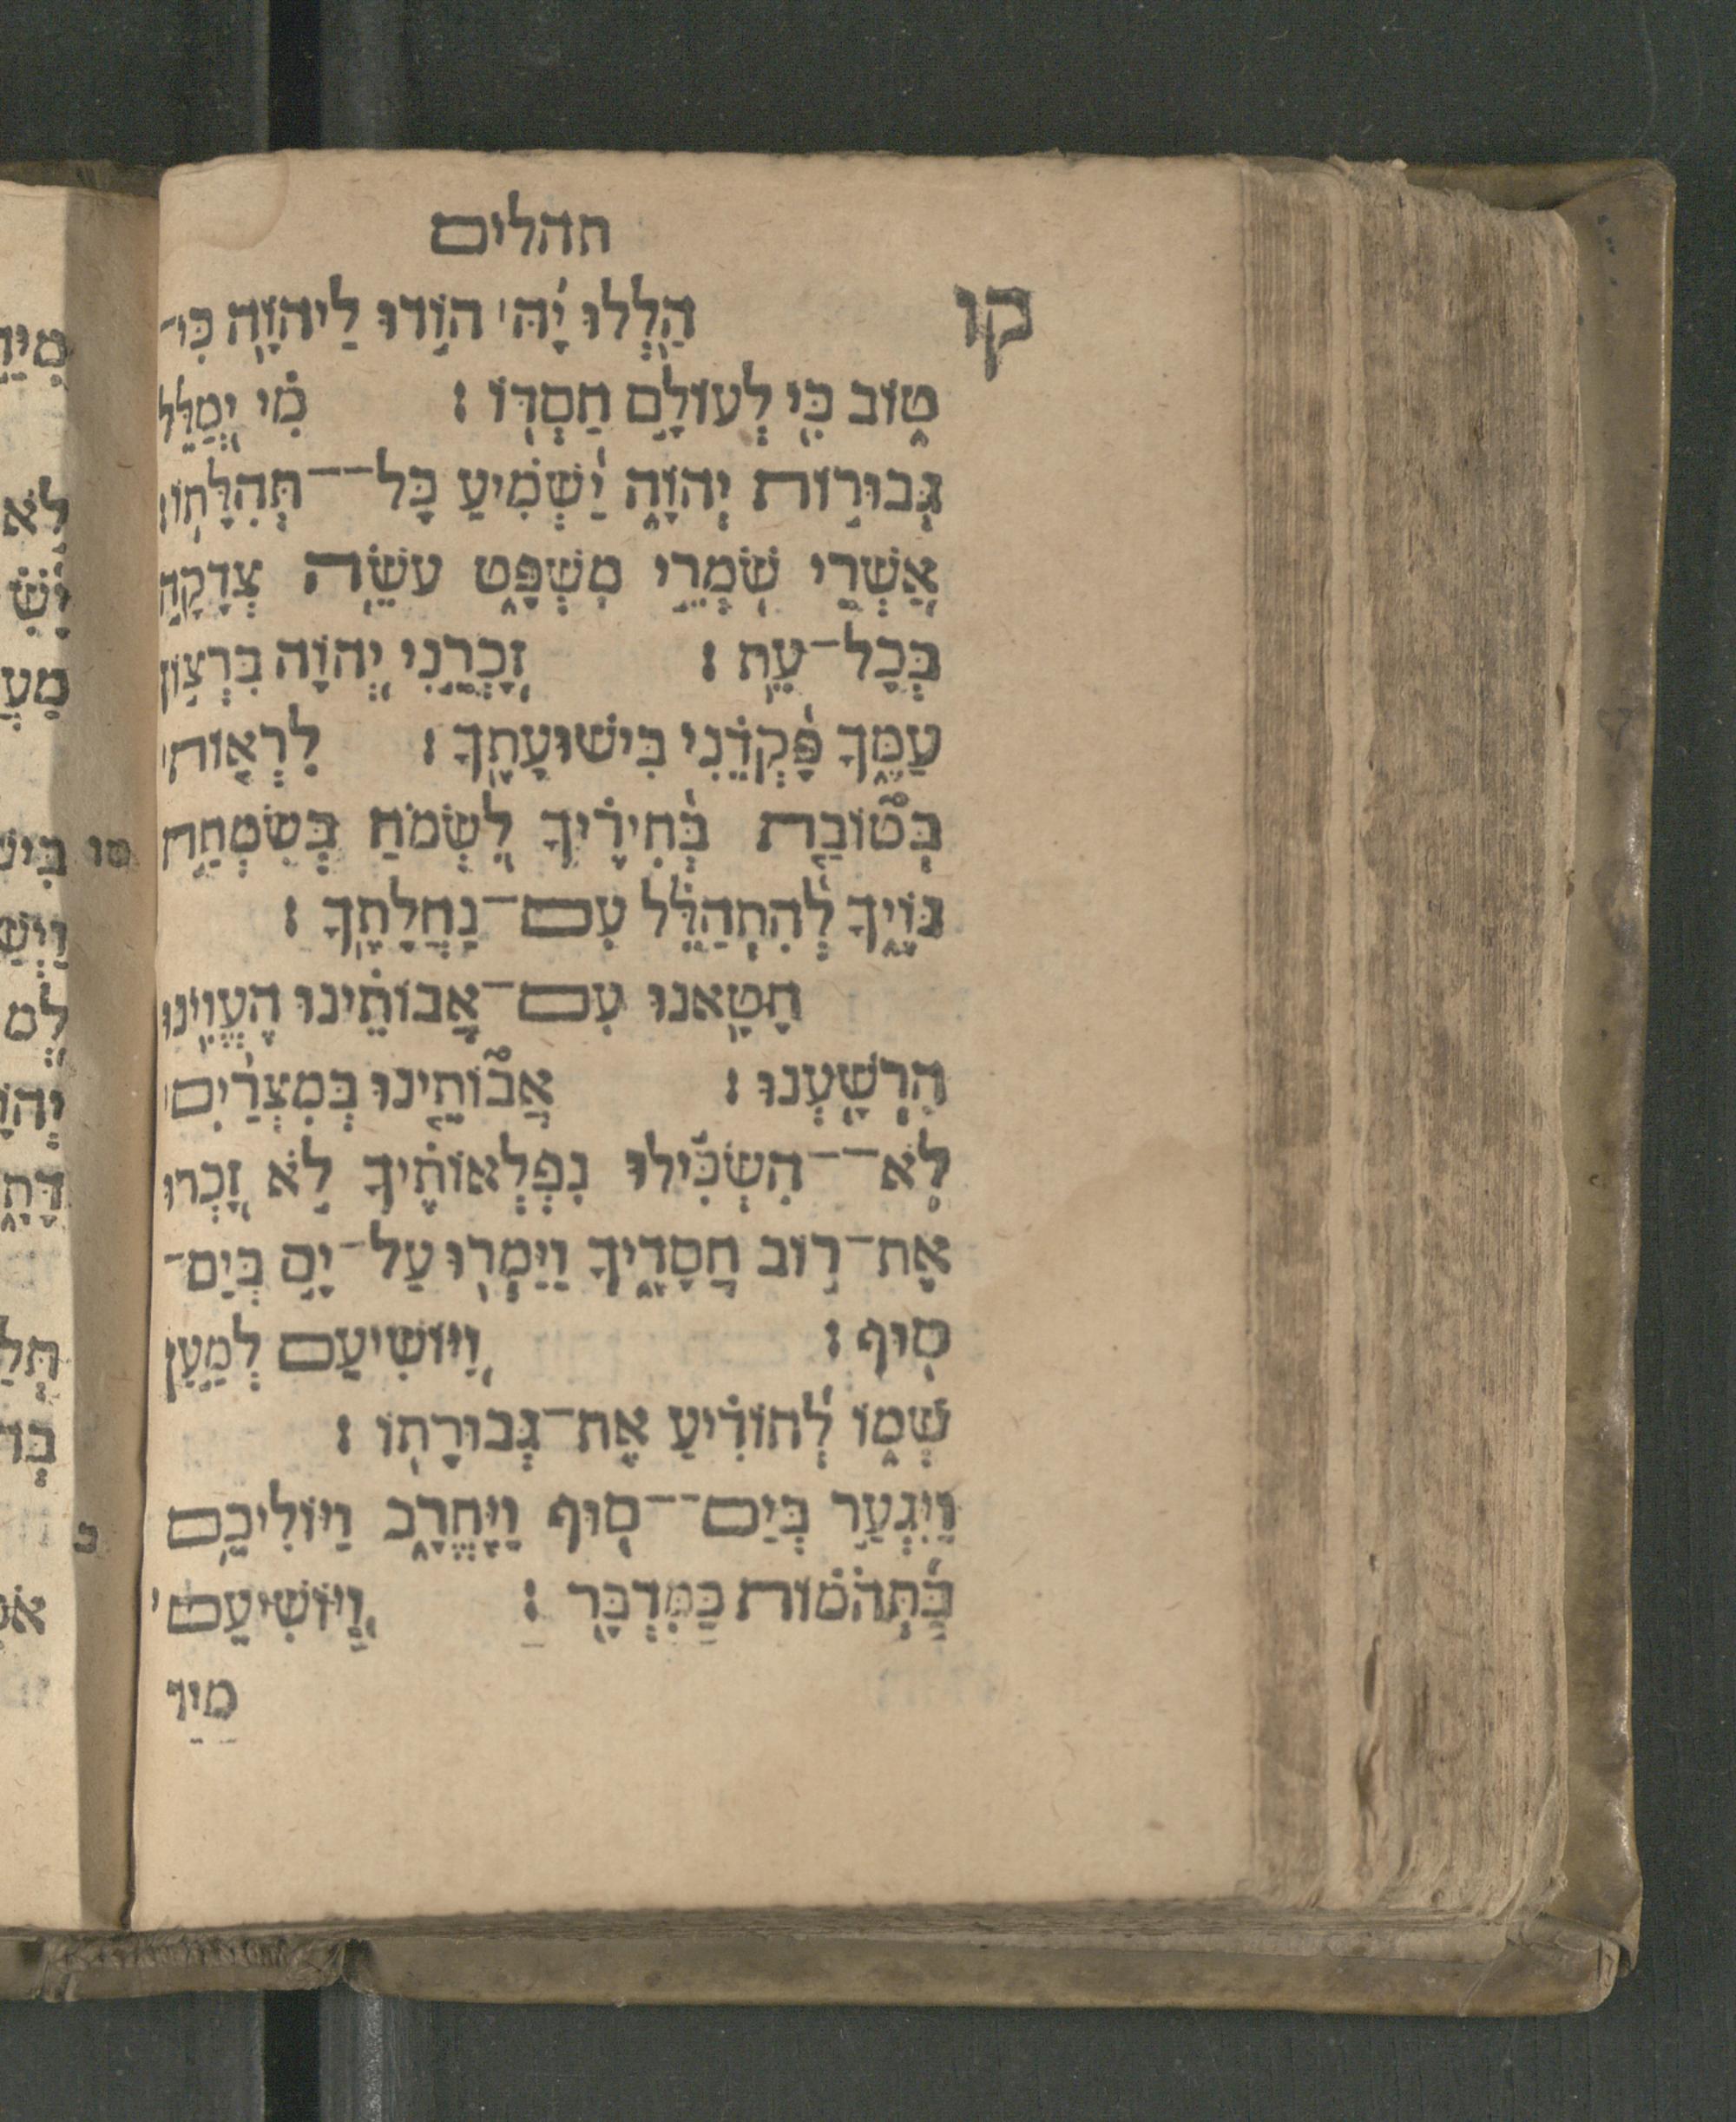 תהלים
קו
הַלְלוּ יָהּ הוֹדוּ לַיהוָה כִּי־
טוֹב כִּי לְעוֹלָם חַסְדּוֹ : מִי יְמַלֵּל
גְּבוּרוֹת יְהוָה יַשְׁמִיעַ כָּל־־תְּהִלָּתוֹ :
אַשְׁרֵי שֹׁמְרֵי מִשְׁפָּט עֹשֵׂה צְדָקָה
בְּכָל־עֵת : זָכְרֵנִי יְהוָה בִּרְצוֹן
עַמֶּךָ פָּקְדֵנִי בִּישׁוּעָתֶךָ : לִרְאוֹת
בְּטוֹבַת בְּחִירֶיךָ לִשְׂמֹחַ בְּשִׂמְחַת
גּוֹיֶךָ לְהִתְהַלֵּל עִם־נַחֲלָתֶךָ :
חָטָאנוּ עִם־אֲבוֹתֵינוּ הֶעֱוִינוּ
הִרְשָׁעְנוּ : אֲבוֹתֵינוּ בְּמִצְרַיִם
לֹא־־הִשְׂכִּילוּ נִפְלְאוֹתֶיךָ לֹא זָכְרוּ
אֶת־רוֹב חֲסָדֶיךָ וַיַּמְרוּ עַל־יָם בְּיַם־
סוּף : וַיּוֹשִׁיעֵם לְמַעַן
שְׁמוֹ לְהוֹדִיעַ אֶת־גְּבוּרָתוֹ :
וַיִּגְעַר בְּיַם־־סוּף וַיֶּחֱרָב וַיּוֹלִיכֵם
בַּתְּהֹמוֹת כַּמִּדְבָּר : וַיּוֹשִׁיעֵם
מִיַּד